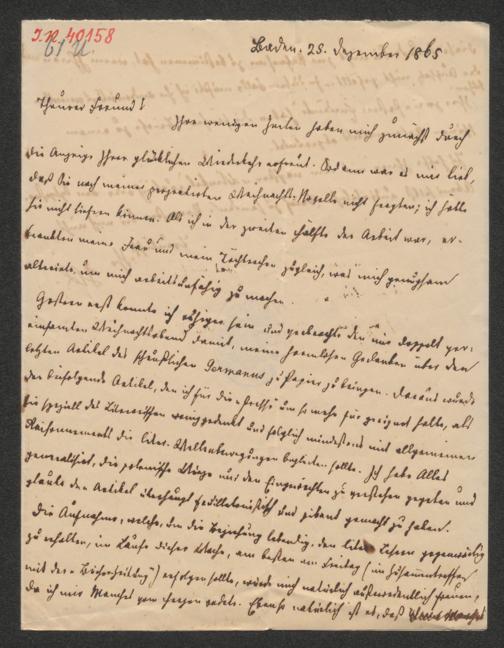 I.N. 40158
Baden. 25. Dezember 1865
Theurer Freund!
Ihre wenigen Zeilen haben mich zunächst durch
die Anzeige Ihrer glücklichen Wiederkehr erfreut. Sodann war es mir lieb,
daß Sie nach meiner projectirten Weihnachts-Novelle nicht fragten; ich hätte
sie nicht liefern können. Als ich in der zweiten Hälfte der Arbeit war, er-
krankten meine Frau und mein Töchterchen zugleich, was mich genugsam
alterirte, um mich arbeitsunfähig zu machen.
Gestern erst konnte ich ruhiger sein und den mir doppelt
einsamen Weihnachtsabend damit, meine Gedanken über den
letzten Artikel des Germanus zu Papier zu bringen. Daraus wurde
der beifolgende Artikel, den ich für die Presse um so mehr für geeignet halte, als
sie speziell des wenig gedenkt und folglich mindestens mit allgemeinen
Raisonnements die liter. begleiten sollte. Ich habe Alles
generalisirt, die polemische nur den Eingeweihten zu verstehen gegeben und
glaube den Artikel überhaupt feuilletonistisch und pikant gemacht zu haben.
Die Aufnahme, welche, um die Beziehung lebendig, den Lesern gegenwärtig
zu erhalten, im Laufe dieser Woche, am besten am Freitag (im Zusammentreffen
mit der "Bücherzeitung") erfolgen sollte, würde mich natürlich außerordentlich freuen,
da ich mir Manches vom Herzen redete. Ebenso natürlich ist es, daß